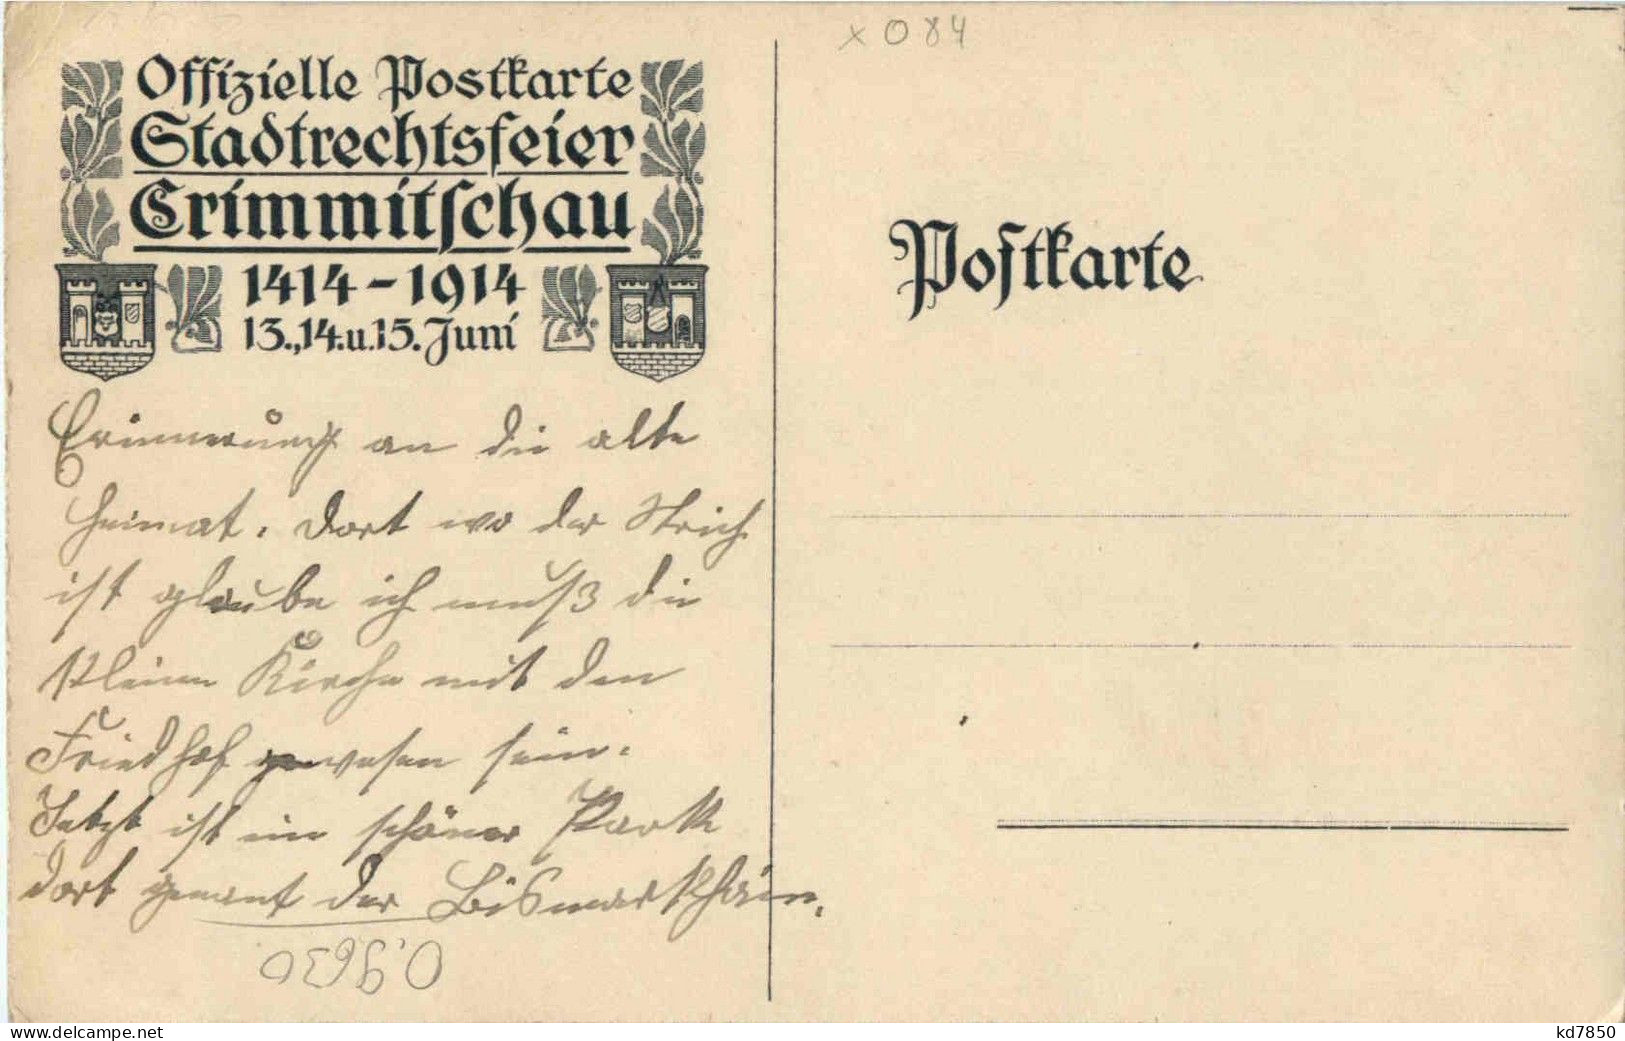 x 084
Offizielle Postkarte
Stadtrechtsfeier
Crimmitschau
1414-1914
13., 14. u. 15. Juni
Postkarte
Erinnerung an die alte
Heimat. Dort wo der Strich
ist glaube ich muß die
kleine Kirche mit den
Friedhof gewesen sein.
Jetzt ist ein schöner Park
dort genant der Bismarkhain.
www.delcampe.net
kd7850